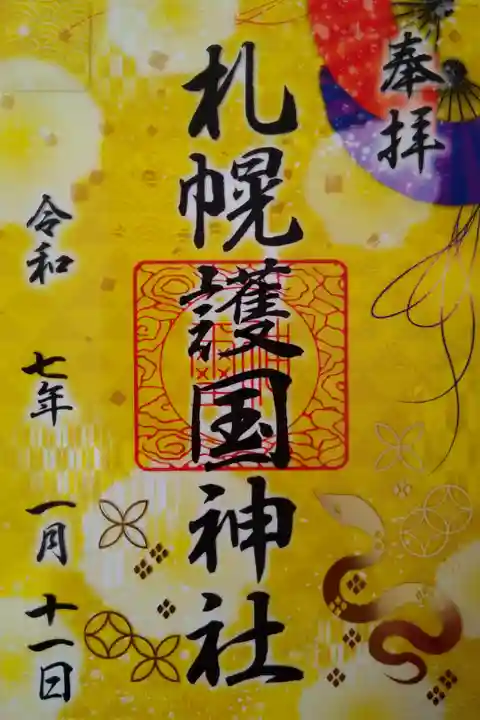 奉拝
札幌護国神社
令和 七年 一月 十一日